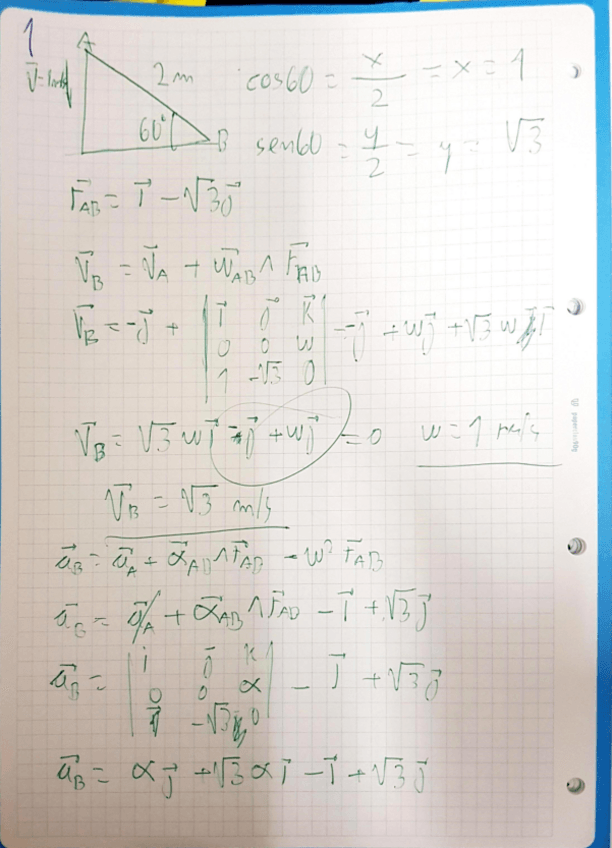 1
A
V⃗ = 1m/s
2 m
60°
B
cos60 = x/2 = x = 1
sen60 = y/2 = y = √3
r⃗AB = i⃗ - √3 j⃗
V⃗B = V⃗A + w⃗AB ∧ r⃗AB
V⃗B = -j⃗ + | i⃗ j⃗ k⃗ ; 0 0 w ; 1 -√3 0 | = -j⃗ + wj⃗ + √3 w i⃗
V⃗B = √3 w i⃗ - j⃗ + wj⃗ = 0 w = 1 rad/s
V⃗B = √3 m/s
a⃗B = a⃗A + α⃗AB ∧ r⃗AB - w² r⃗AB
a⃗B = a⃗A + α⃗AB ∧ r⃗AB - i⃗ + √3 j⃗
a⃗B = | i j⃗ k ; 0 0 α ; 1 -√3 0 | - i⃗ + √3 j⃗
a⃗B = α j⃗ + √3 α i⃗ - i⃗ + √3 j⃗